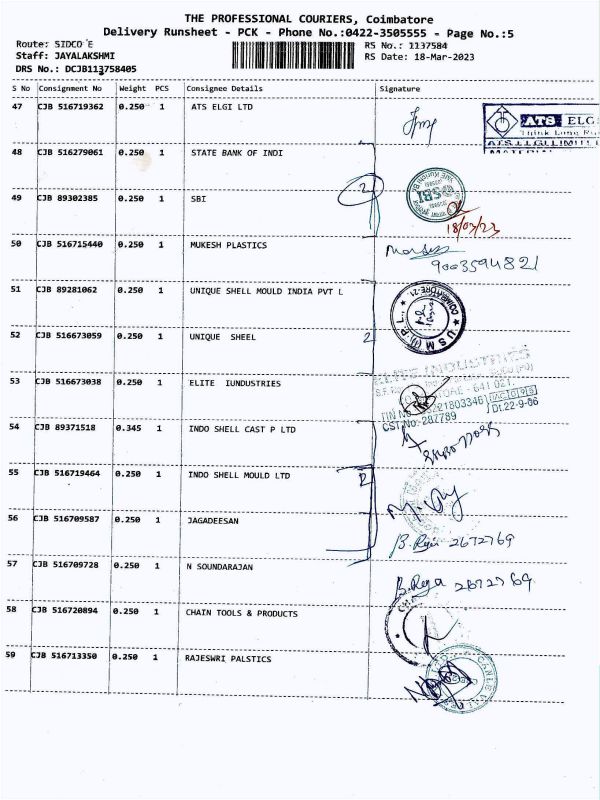 THE PROFESSIONAL COURIERS, Coimbatore
Delivery Runsheet - PCK - Phone No.:0422-3505555 - Page No.:5
Route: SIDCO E
Staff: JAYALAKSHMI
DRS No.: DCJB113758405
RS No.: 1137584
RS Date: 18-Mar-2023
S No Consignment No Weight PCS Consignee Details Signature
47 CJB 516719362 0.250 1 ATS ELGI LTD
ATS ELG
48 CJB 516279061 0.250 1 STATE BANK OF INDI
2
49 CJB 89302385 0.250 1 SBI
SBI
18/03/23
50 CJB 516715440 0.250 1 MUKESH PLASTICS
9003594821
51 CJB 89281062 0.250 1 UNIQUE SHELL MOULD INDIA PVT L
COIMBATORE-21
52 CJB 516673059 0.250 1 UNIQUE SHEEL 2
53 CJB 516673038 0.250 1 ELITE IUNDUSTRIES
ELITE INDUSTRIES
641 021.
TIN No
CST No: 287789 Dt.22-9-06
54 CJB 89371518 0.345 1 INDO SHELL CAST P LTD
55 CJB 516719464 0.250 1 INDO SHELL MOULD LTD 2
56 CJB 516709587 0.250 1 JAGADEESAN
B. Raja 2672769
57 CJB 516709728 0.250 1 N SOUNDARAJAN
B. Raja 2672769
58 CJB 516720894 0.250 1 CHAIN TOOLS & PRODUCTS
59 CJB 516713350 0.250 1 RAJESWRI PALSTICS